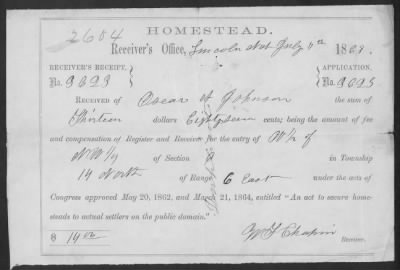 2604
HOMESTEAD.
Receiver's Office, Lincoln Neb July 11th 1868.
RECEIVER'S RECEIPT, APPLICATION,
No. 3693 No. 3695
RECEIVED of Oscar A Johnson the sum of
Thirteen dollars Eighteen cents; being the amount of fee
and compensation of Register and Receiver for the entry of W 1/2 of
N.W 1/4 of Section in Township
14 North of Range 6 East under the acts of
Congress approved May 20, 1862, and March 21, 1864, entitled "An act to secure home-
steads to actual settlers on the public domain."
$ 14 00 Chapin
Receiver.